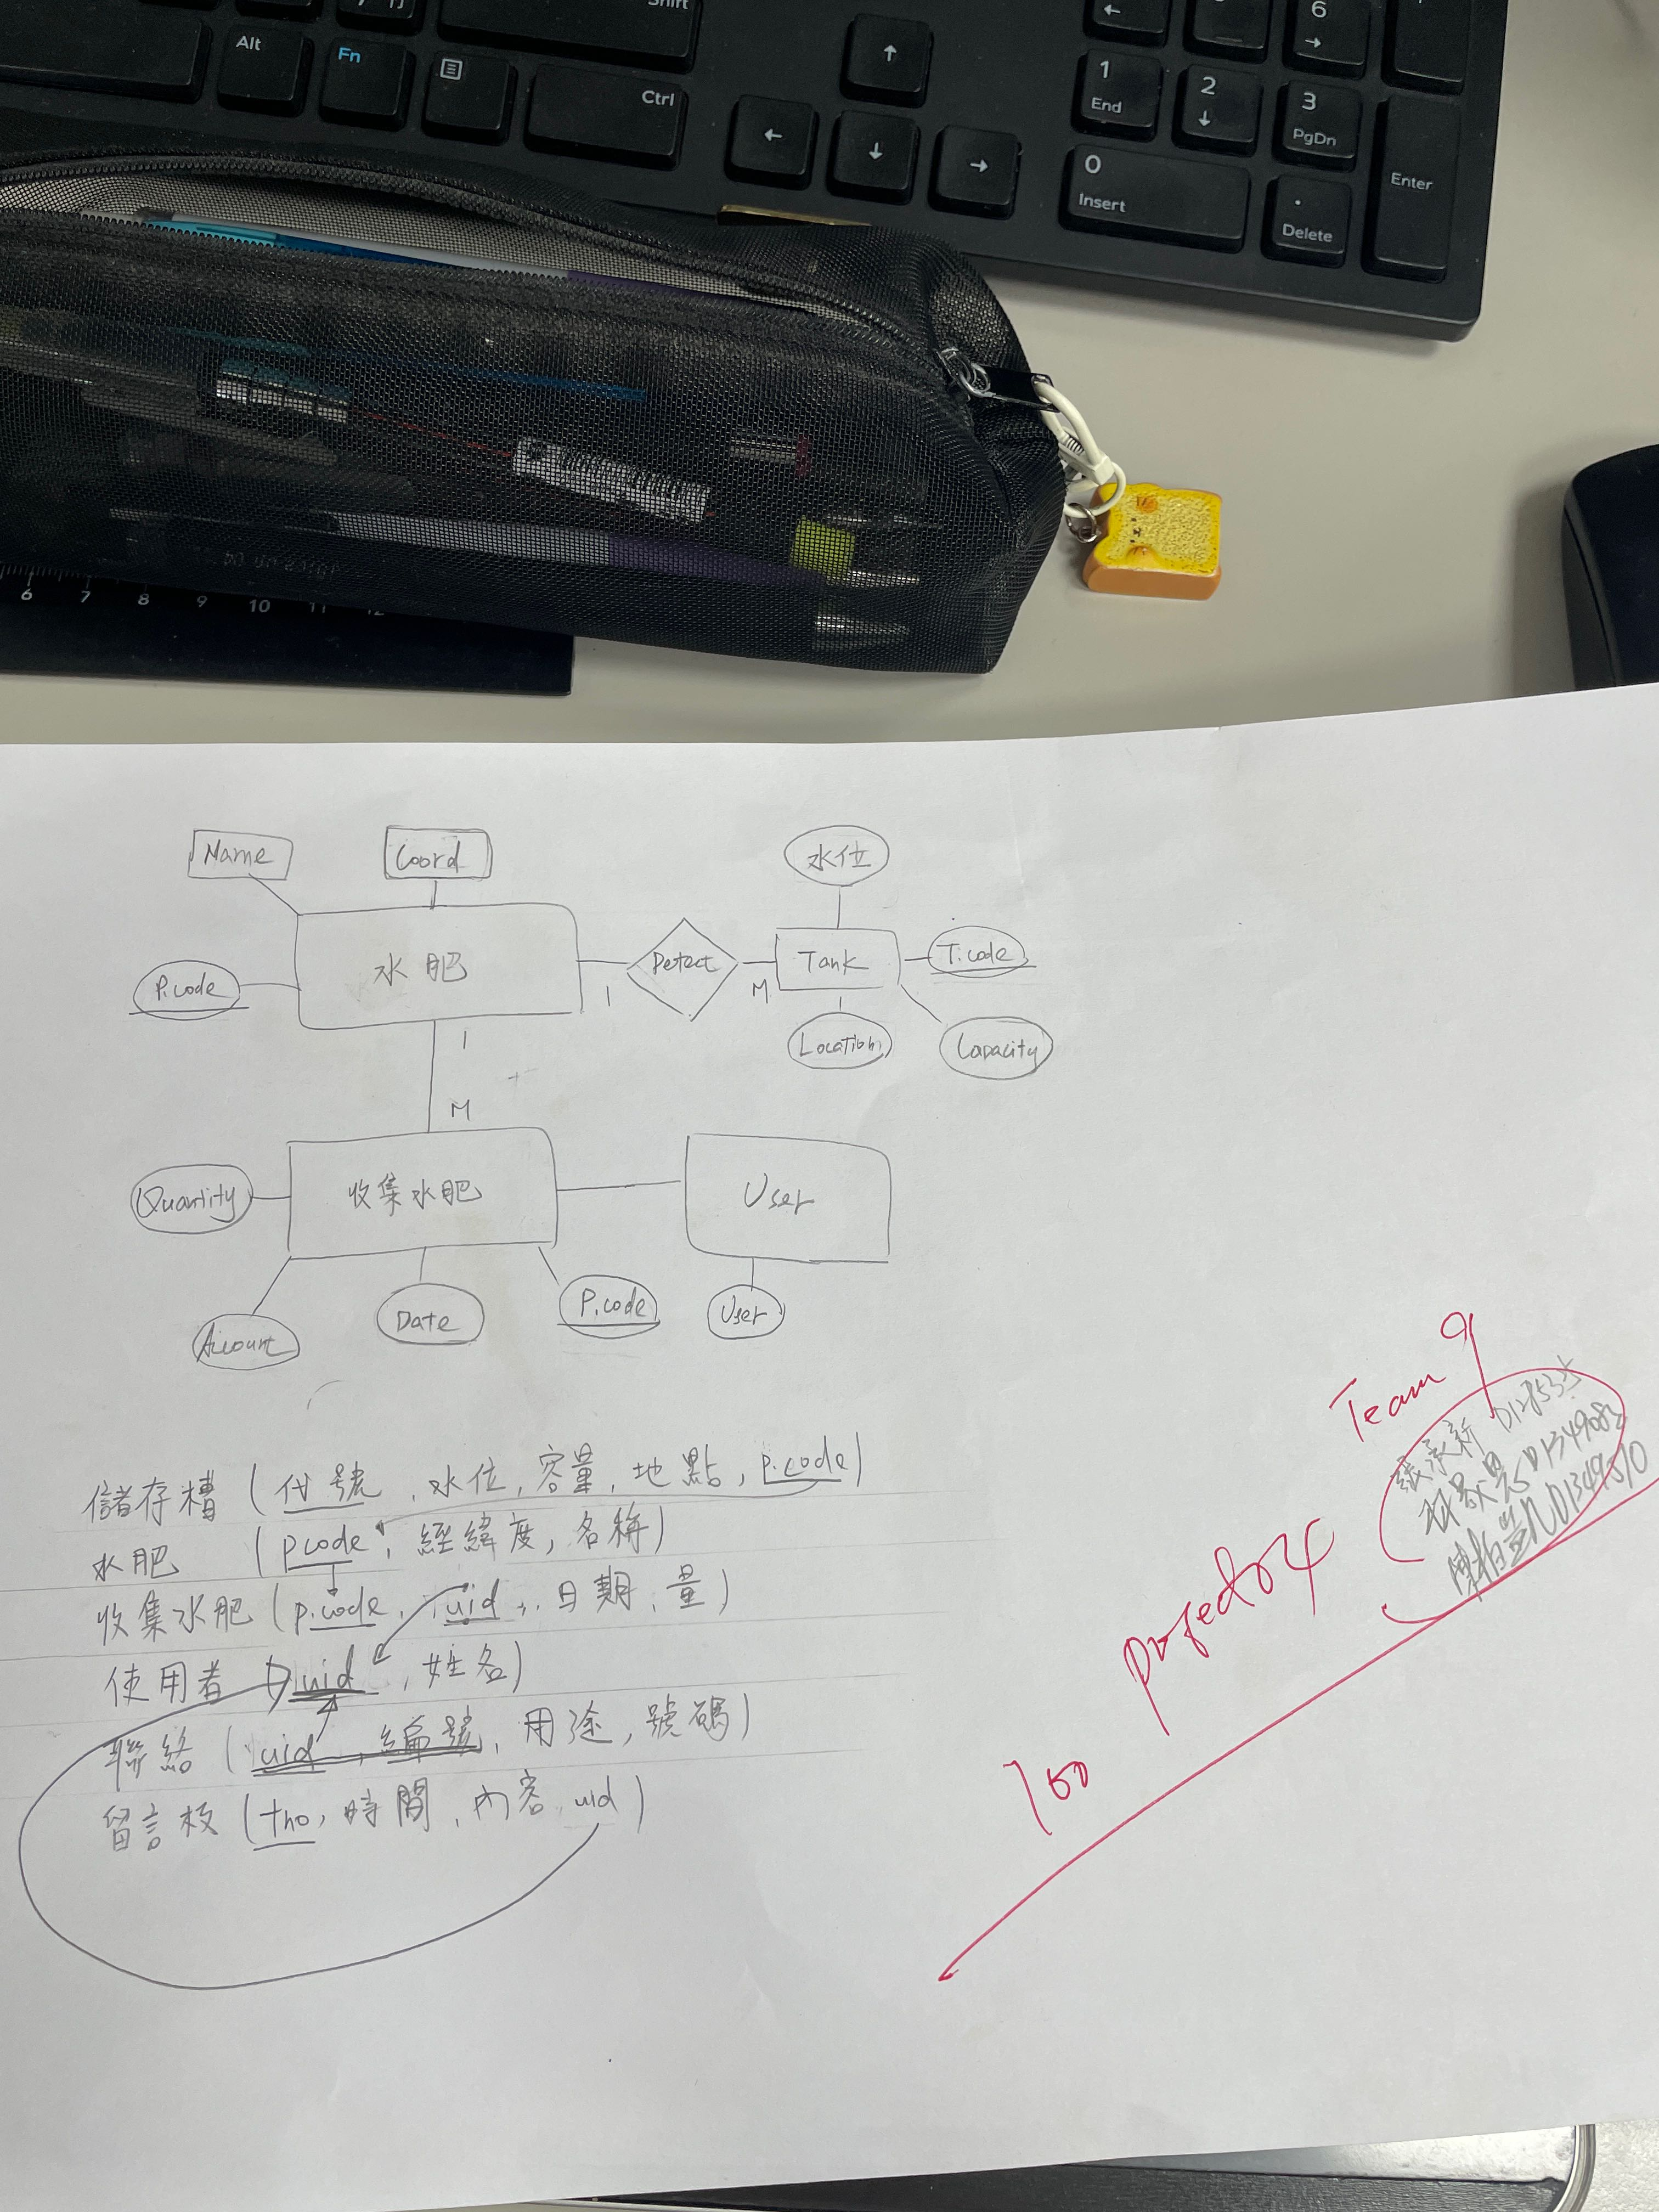 Shift
Alt
Fn
Ctrl
6
1
End
2
3
PgDn
0
Insert
.
Delete
Enter
6 7 8 9 10 11 12
Name
Coord
水位
水肥
Detect
Tank
T.code
P.code
1
M
Location
Capacity
1
M
Quantity
收集水肥
User
Account
Date
P.code
User
Team 9
儲存槽(代號,水位,容量,地點,p.code)
水肥 (pcode,經緯度,名稱)
收集水肥(p.code, uid, 日期,量)
使用者(uid,姓名)
聯絡(uid,編號,用途,號碼)
留言板(tno,時間,內容,uid)
100